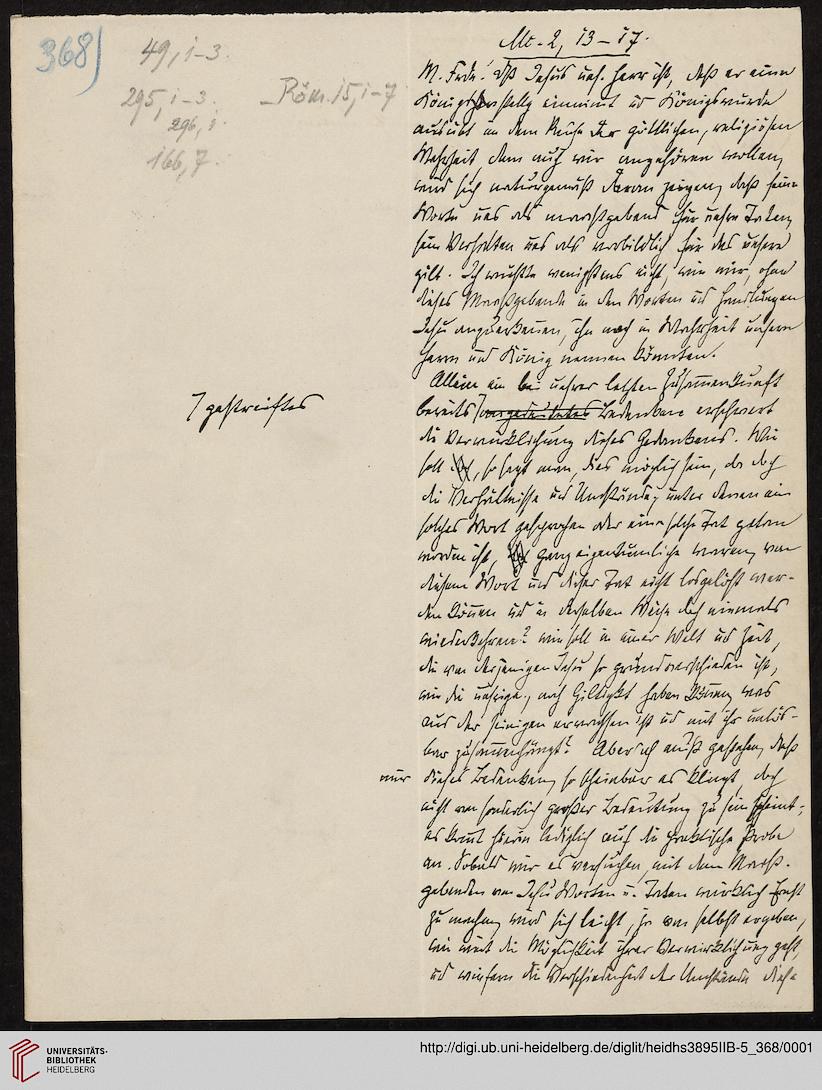 368)
49, 1-3.
295, 1-3.
296, 3.
166, 7.
Röm. 15, 1-7
Mc. 2, 13-17.
M. Frde.! Dß Jesus uns. Herr ist, daß er eine
Königsherrstellg einnimt und Königswürde
ausübt in dem Reiche der göttlichen, religiösen
Wahrheit, dem auch wir angehören wollen,
wird sich naturgemäß daran zeigen, daß seine
Worte uns als maaßgebend für unsre Taten,
sein Verhalten uns als vorbildlich für das unsere
gilt. Ich wüßte wenigstens nicht, wie wir, ohne
dieses Maaßgebende in den Worten und Handlungen
Jesu anzuerkennen, ihn noch in Wahrheit unsern
Herrn und König nennen könnten.
Allein ein bei unsrer letzten Zusammenkunft
⌈gestreiftes
bereits ⌈angedeutetes Bedenken erschwert
die Verwirklichung dieses Gedankens. Wie
soll, so sagt man, dies möglich sein, da doch
die Verhältnisse und Umstände, unter denen ein
solches Wort gesprochen oder eine solche Tat getan
worden ist, ganz eigentümliche waren, von
diesem Wort und dieser Tat nicht losgelöst wer-
den können und in derselben Weise doch niemals
wiederkehren? wie soll in einer Welt und Zeit,
die von derjenigen Jesu so grundverschieden ist,
wie die unsrige, noch Giltigkt haben können, was
aus der seinigen erwachsen ist und mit ihr unlös-
bar zusammenhängt? Aber ich muß gestehen, daß
mir dieses Bedenken, so scheinbar es klingt, doch
nicht von sonderlich großer Bedeutung zu sein scheint;
es kommt hierin lediglich auf die praktische Probe
an. Sobald wir es versuchen, mit dem Maaß-
gebenden von Jesu Worten u. Taten wirklich Ernst
zu machen, wird sich leicht, ja von selbst ergeben,
wie weit die Möglichkeit ihrer Verwirklichung geht,
und wiefern die Verschiedenheit der Umstände diese
UNIVERSITÄTS-
BIBLIOTHEK
HEIDELBERG
http://digi.ub.uni-heidelberg.de/diglit/heidhs3895IIB-5_368/0001